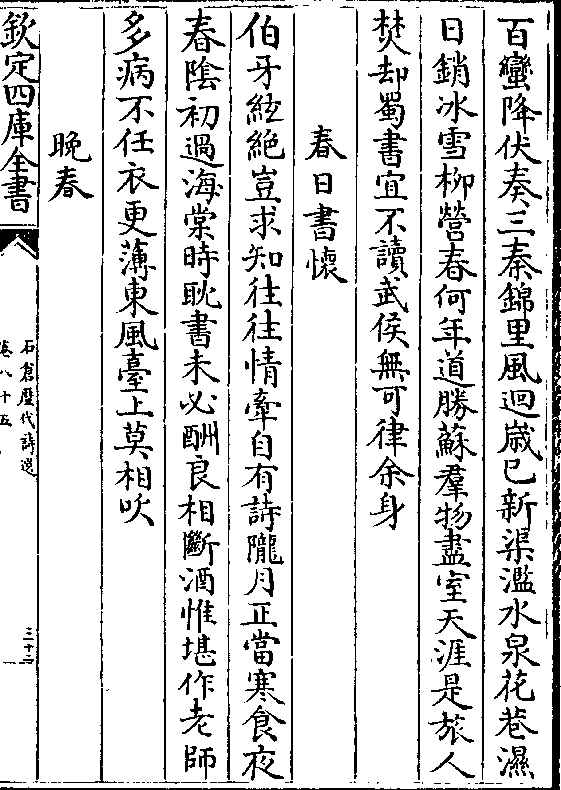 百蠻降伏奏三秦錦里風迴歲已新渠濫水泉花巷濕
日銷冰雪柳營春何年道勝蘇羣物盡室天涯是旅人
焚却蜀書宜不讀武侯無可律余身
春日書懷
伯牙絃絶豈求知往往情牽自有詩隴月正當寒食夜
春陰初過海棠時耽書未必酬良相斷酒惟堪作老師
多病不任衣更薄東風臺上莫相吹
晚春
欽定四庫全書
石倉歷代詩選
卷八十五
三十二